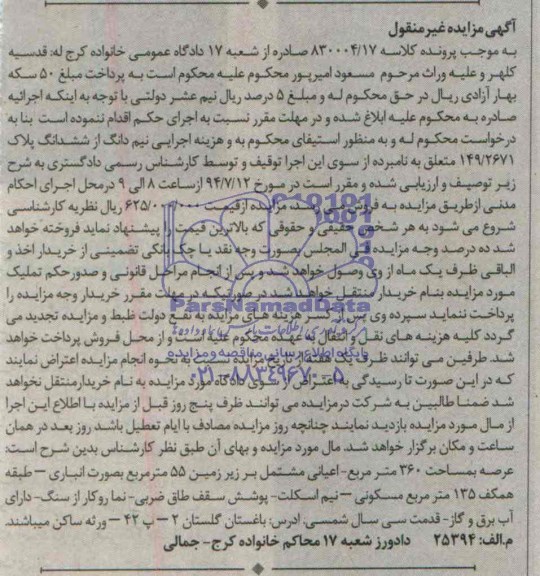 آگهی مزایده غیر منقول
به موجب پرونده کلاسه ۸۳۰۰۰۴/۱۷ صادره از شعبه ۱۷ دادگاه عمومی خانواده کرج له: قدسیه
کلهر و علیه وراث مرحوم مسعود امیرپور محکوم علیه محکوم است به پرداخت مبلغ ۵۰ سکه
بهار آزادی ریال در حق محکوم له و مبلغ ۵ درصد ریال نیم عشر دولتی با توجه به اینکه اجرائیه
صادره به محکوم علیه ابلاغ شده و در مهلت مقرر نسبت به اجرای حکم اقدام ننموده است بنا به
درخواست محکوم له و به منظور استیفای محکوم به و هزینه اجرایی نیم دانگ از ششدانگ پلاک
۱۴۹/۲۶۷۱ متعلق به نامبرده از سوی این اجرا توقیف و توسط کارشناس رسمی دادگستری به شرح
زیر توصیف و ارزیابی شده و مقرر است در مورخ ۹۴/۷/۱۲ از ساعت ۸ الی ۹ در محل اجرای احکام
مدنی از طریق مزایده به فروش می رسد مزایده از قیمت ریال نظریه کارشناسی
شروع می شود به هر شخص حقیقی و حقوقی که بالاترین قیمت را پیشنهاد نماید فروخته خواهد
شد ده درصد وجه مزایده فی المجلس بصورت وجه نقد یا چک بانکی تضمینی از خریدار اخذ و
الباقی ظرف یک ماه از وی وصول خواهد شد و پس از انجام مراحل قانونی و صدور حکم تملیک
مورد مزایده بنام خریدار منتقل خواهد شد در صورتیکه در مهلت مقرر خریدار وجه مزایده را
پرداخت ننماید سپرده وی پس از کسر هزینه های مزایده به نفع دولت ضبط و مزایده تجدید می
گردد کلیه هزینه های نقل و انتقال به عهده محکوم علیه است و از محل فروش پرداخت خواهد
شد. طرفین می توانند ظرف یک هفته از تاریخ مزایده نسبت به نحوه انجام مزایده اعتراض نمایند
که در این صورت تا رسیدگی به اعتراض از سوی دادگاه مورد مزایده به نام خریدار منتقل نخواهد
شد ضمنا طالبین به شرکت در مزایده می توانند ظرف پنج روز قبل از مزایده با اطلاع این اجرا
از مال مورد مزایده بازدید نمایند چنانچه روز مزایده مصادف با ایام تعطیل باشد روز بعد در همان
ساعت و مکان برگزار خواهد شد. مال مورد مزایده و بهای آن طبق نظر کارشناس بدین شرح است:
عرصه بمساحت ۳۶۰ متر مربع- اعیانی مشتمل بر زیر زمین ۵۵ مترمربع بصورت انباری – طبقه
همکف ۱۳۵ متر مربع مسکونی – نیم اسکلت- پوشش سقف طاق ضربی- نما روکار از سنگ- دارای
آب برق و گاز- قدمت سی سال شمسی. ادرس: باغستان گلستان ۲ – پ ۴۲ – ورثه ساکن میباشند.
م.الف: ۲۵۳۹۴ دادورز شعبه ۱۷ محاکم خانواده کرج- جمالی
ParsNamadData
پایگاه اطلاع رسانی مناقصه و مزایده
۰۲۱-۸۸۳۴۹۶۷۰-۵